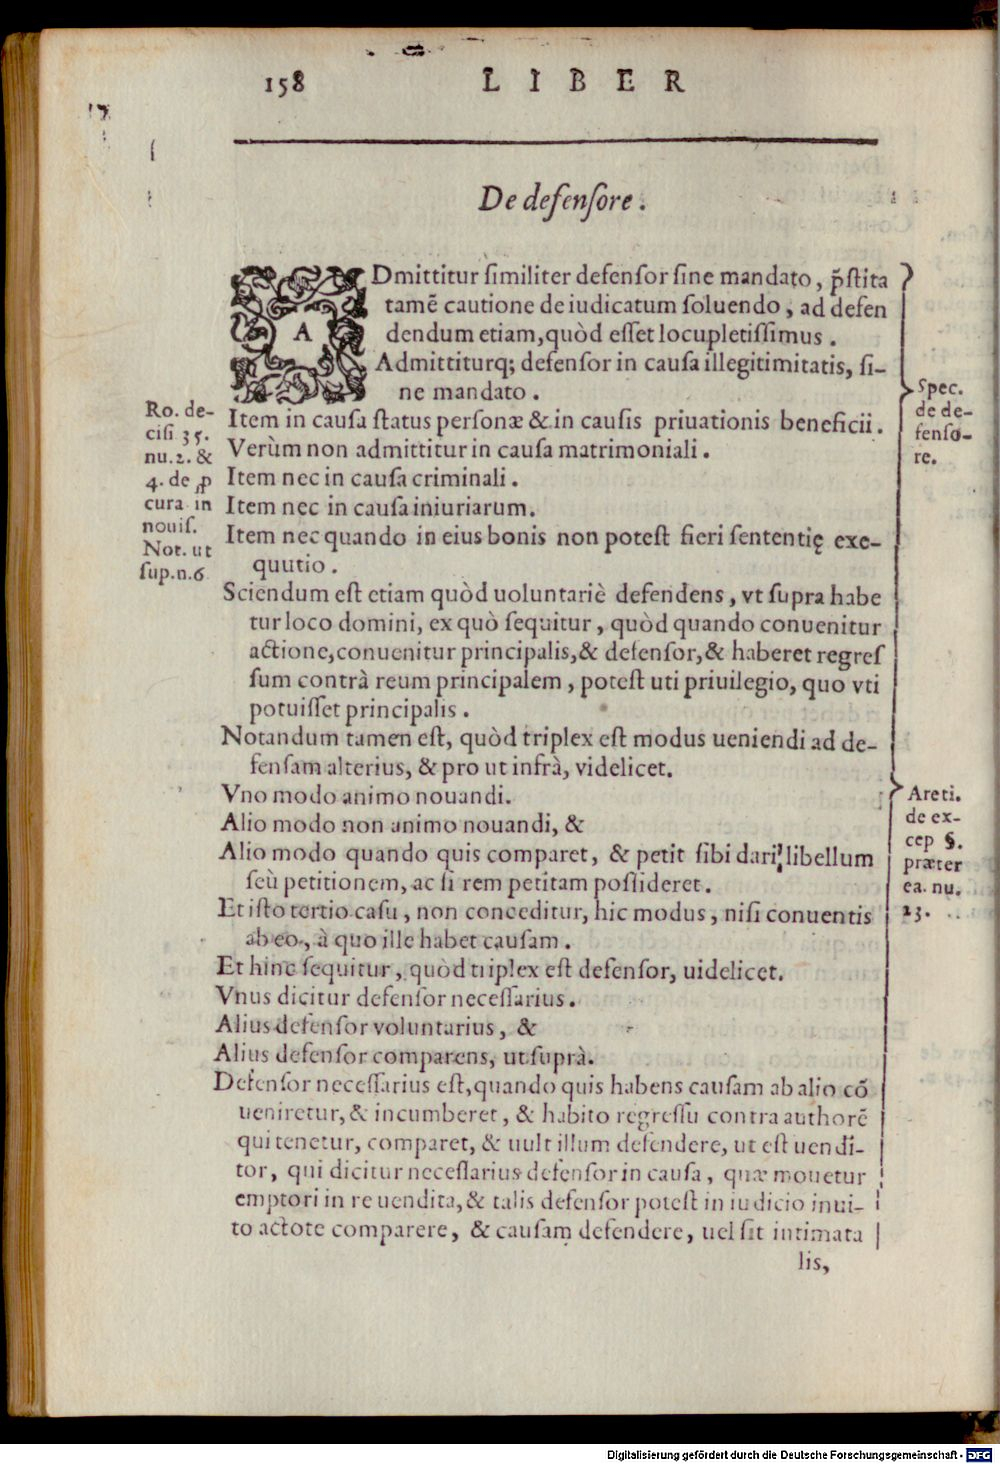 158 LIBER
De defensore.
ADmittitur similiter defensor sine mandato, p̃stita
tamẽ cautione de iudicatum soluendo, ad defen
dendum etiam, quòd esset locupletissimus.
Admittiturq; defensor in causa illegitimitatis, si-
ne mandato.
Item in causa status personæ & in causis priuationis beneficii.
Verùm non admittitur in causa matrimoniali.
Item nec in causa criminali.
Item nec in causa iniuriarum.
Item nec quando in eius bonis non potest fieri sententię exe-
quutio.
Sciendum est etiam quòd uoluntariè defendens, vt supra habe
tur loco domini, ex quò sequitur, quòd quando conuenitur
actione, conuenitur principalis, & defensor, & haberet regres
sum contrà reum principalem, potest uti priuilegio, quo vti
potuisset principalis.
Notandum tamen est, quòd triplex est modus ueniendi ad de-
fensam alterius, & pro ut infrà, videlicet.
Vno modo animo nouandi.
Alio modo non animo nouandi, &
Alio modo quando quis comparet, & petit sibi dari libellum
seù petitionem, ac si rem petitam possideret.
Et isto tertio casu, non conceditur, hic modus, nisi conuentis
ab eo, à quo ille habet causam.
Et hinc sequitur, quòd triplex est defensor, uidelicet.
Vnus dicitur defensor necessarius.
Alius defensor voluntarius, &
Alius defensor comparens, ut suprà.
Defensor necessarius est, quando quis habens causam ab alio cõ
ueniretur, & incumberet, & habito regressu contra authorẽ
qui tenetur, comparet, & uult illum defendere, ut est uendi-
tor, qui dicitur necessarius defensor in causa, quæ mouetur
emptori in re uendita, & talis defensor potest in iudicio inui-
to actote comparere, & causam defendere, uel sit intimata
lis,
Ro. de-
cisi 35.
nu. 2. &
4. de ꝓ
cura in
nouis.
Not. ut
sup. n. 6
Spec.
de de-
fenso-
re.
Areti.
de ex-
cep §.
præter
ea. nu.
23.
Digitalisierung gefördert durch die Deutsche Forschungsgemeinschaft - DFG